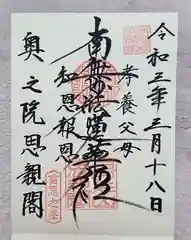 令和三年三月十八日
孝養父母
南無妙法蓮華経
知恩報恩
奥之院思親閣